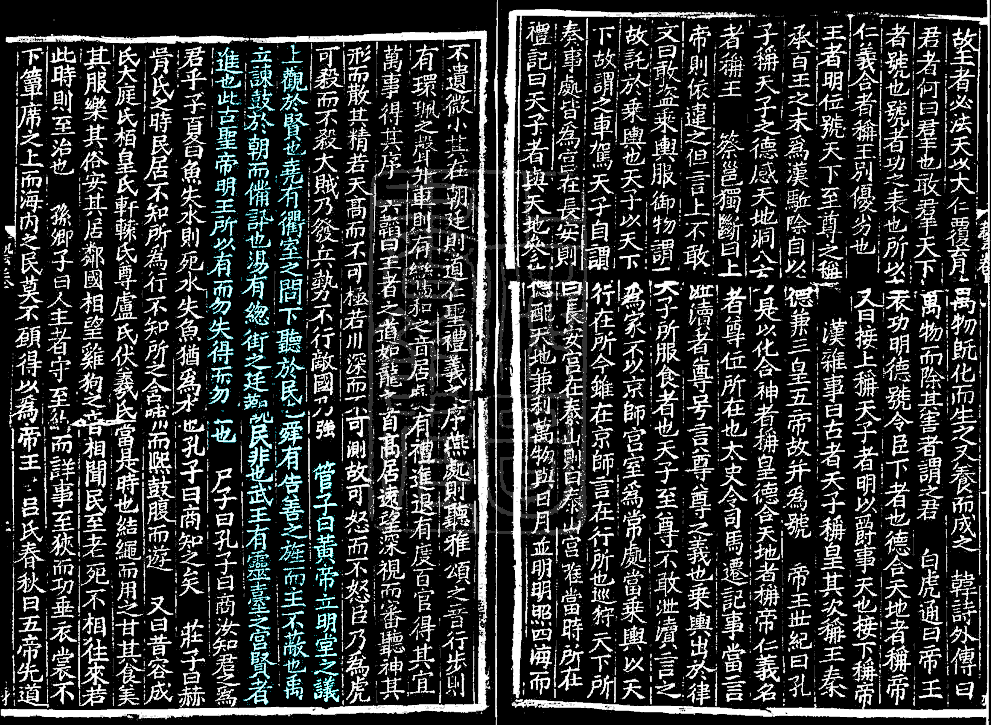 故王者必法天以大仁覆育萬物既化而生之又養而成之　韓詩外傳曰
君者何曰羣也敢羣天下萬物而除其害者謂之君　白虎通曰帝王
者號也號者功之表也所以表功明德號令臣下者也德合天地者稱帝
仁義合者稱王別優劣也　又曰接上稱天子者明以爵事天也接下稱帝
王者明位號天下至尊之稱　漢雜事曰古者天子稱皇其次稱王秦
承百王之末為漢駈除自以德兼三皇五帝故并為號　帝王世紀曰孔
子稱天子之德感天地洞八方是以化合神者稱皇德合天地者稱帝仁義名
者稱王　蔡邕獨斷曰上者尊位所在也太史令司馬遷記事當言
帝則依違之但言上不敢泄瀆者尊号言尊尊之義也乘輿出於律
文曰敢盗乘輿服御物謂天子所服食者也天子至尊不敢泄瀆言之
故託於乘輿也天子以天下為家不以京師宫室為常處當乘輿以天
下故謂之車駕天子自謂行在所今雖在京師言在行所也巡狩天下所
奏事處皆為宫在長安則曰長安宫在泰山則曰泰山宫唯當時所在
禮記曰天子者與天地參故德配天地兼利萬物與日月並明明照四海而
不遺微小其在朝廷則道仁聖禮義之序燕處則聽雅頌之音行步則
有環珮之聲升車則有鸞和之音居處有禮進退有度百官得其宜
萬事得其序　六韜曰王者之道如龍之首高居逺望深視而審聽神其
形而散其精若天高而不可極若川深而不可測故可怒而不怒臣乃為虎
可殺而不殺大賊乃發兵勢不行敵國乃強　管子曰黃帝立明堂之議
上觀於賢也堯有衢室之問下聽於民也舜有告善之旌而主不蔽也禹
立諫鼓於朝而備訊也湯有總街之廷觀民非也武王有靈臺之宫賢者
進也此古聖帝明王所以有而勿失得而勿亡也　尸子曰孔子曰商汝知君之為
君乎子夏曰魚失水則死水失魚猶為水也孔子曰商知之矣　莊子曰赫
胥氏之時民居不知所為行不知所之含哺而熙鼓腹而遊　又曰昔容成
氏大庭氏栢皇氏軒轅氏尊盧氏伏羲氏當是時也結繩而用之甘其食美
其服樂其俗安其居鄰國相望雞狗之音相聞民至老死不相往來若
此時則至治也　孫卿子曰人主者守至約而詳事至狄而功垂衣裳不
下簟席之上而海内之民莫不願得以為帝王　吕氏春秋曰五帝先道